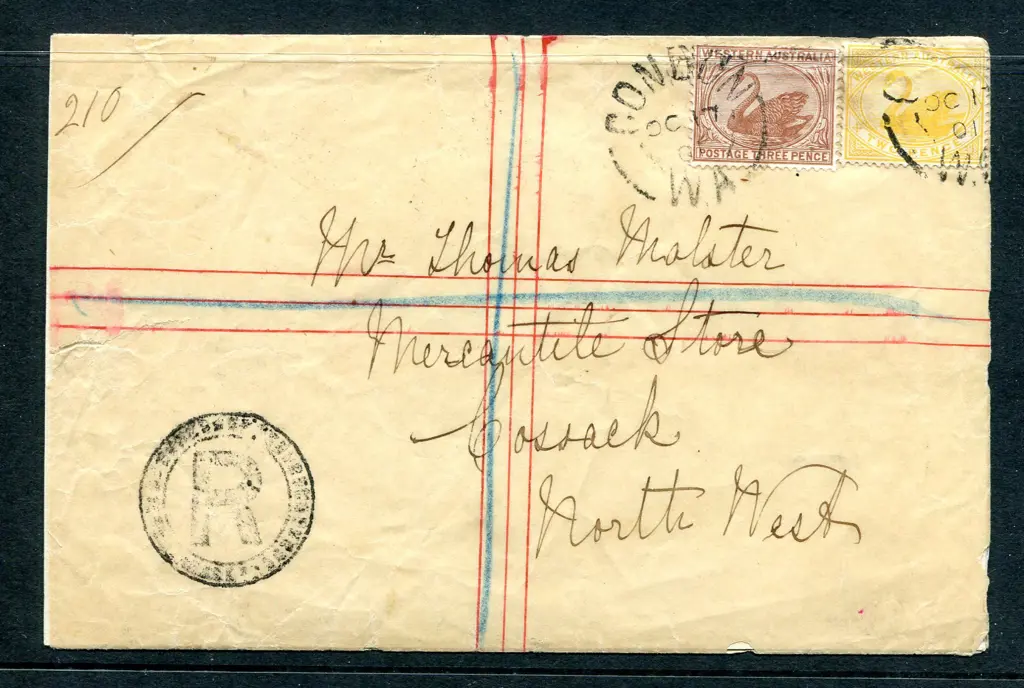 210
WESTERN AUSTRALIA
POSTAGE THREE PENCE
OC 17
W.A
OC 17
01
W.
Mr Thomas Molster
Mercantile Store
Cossack
North West
R